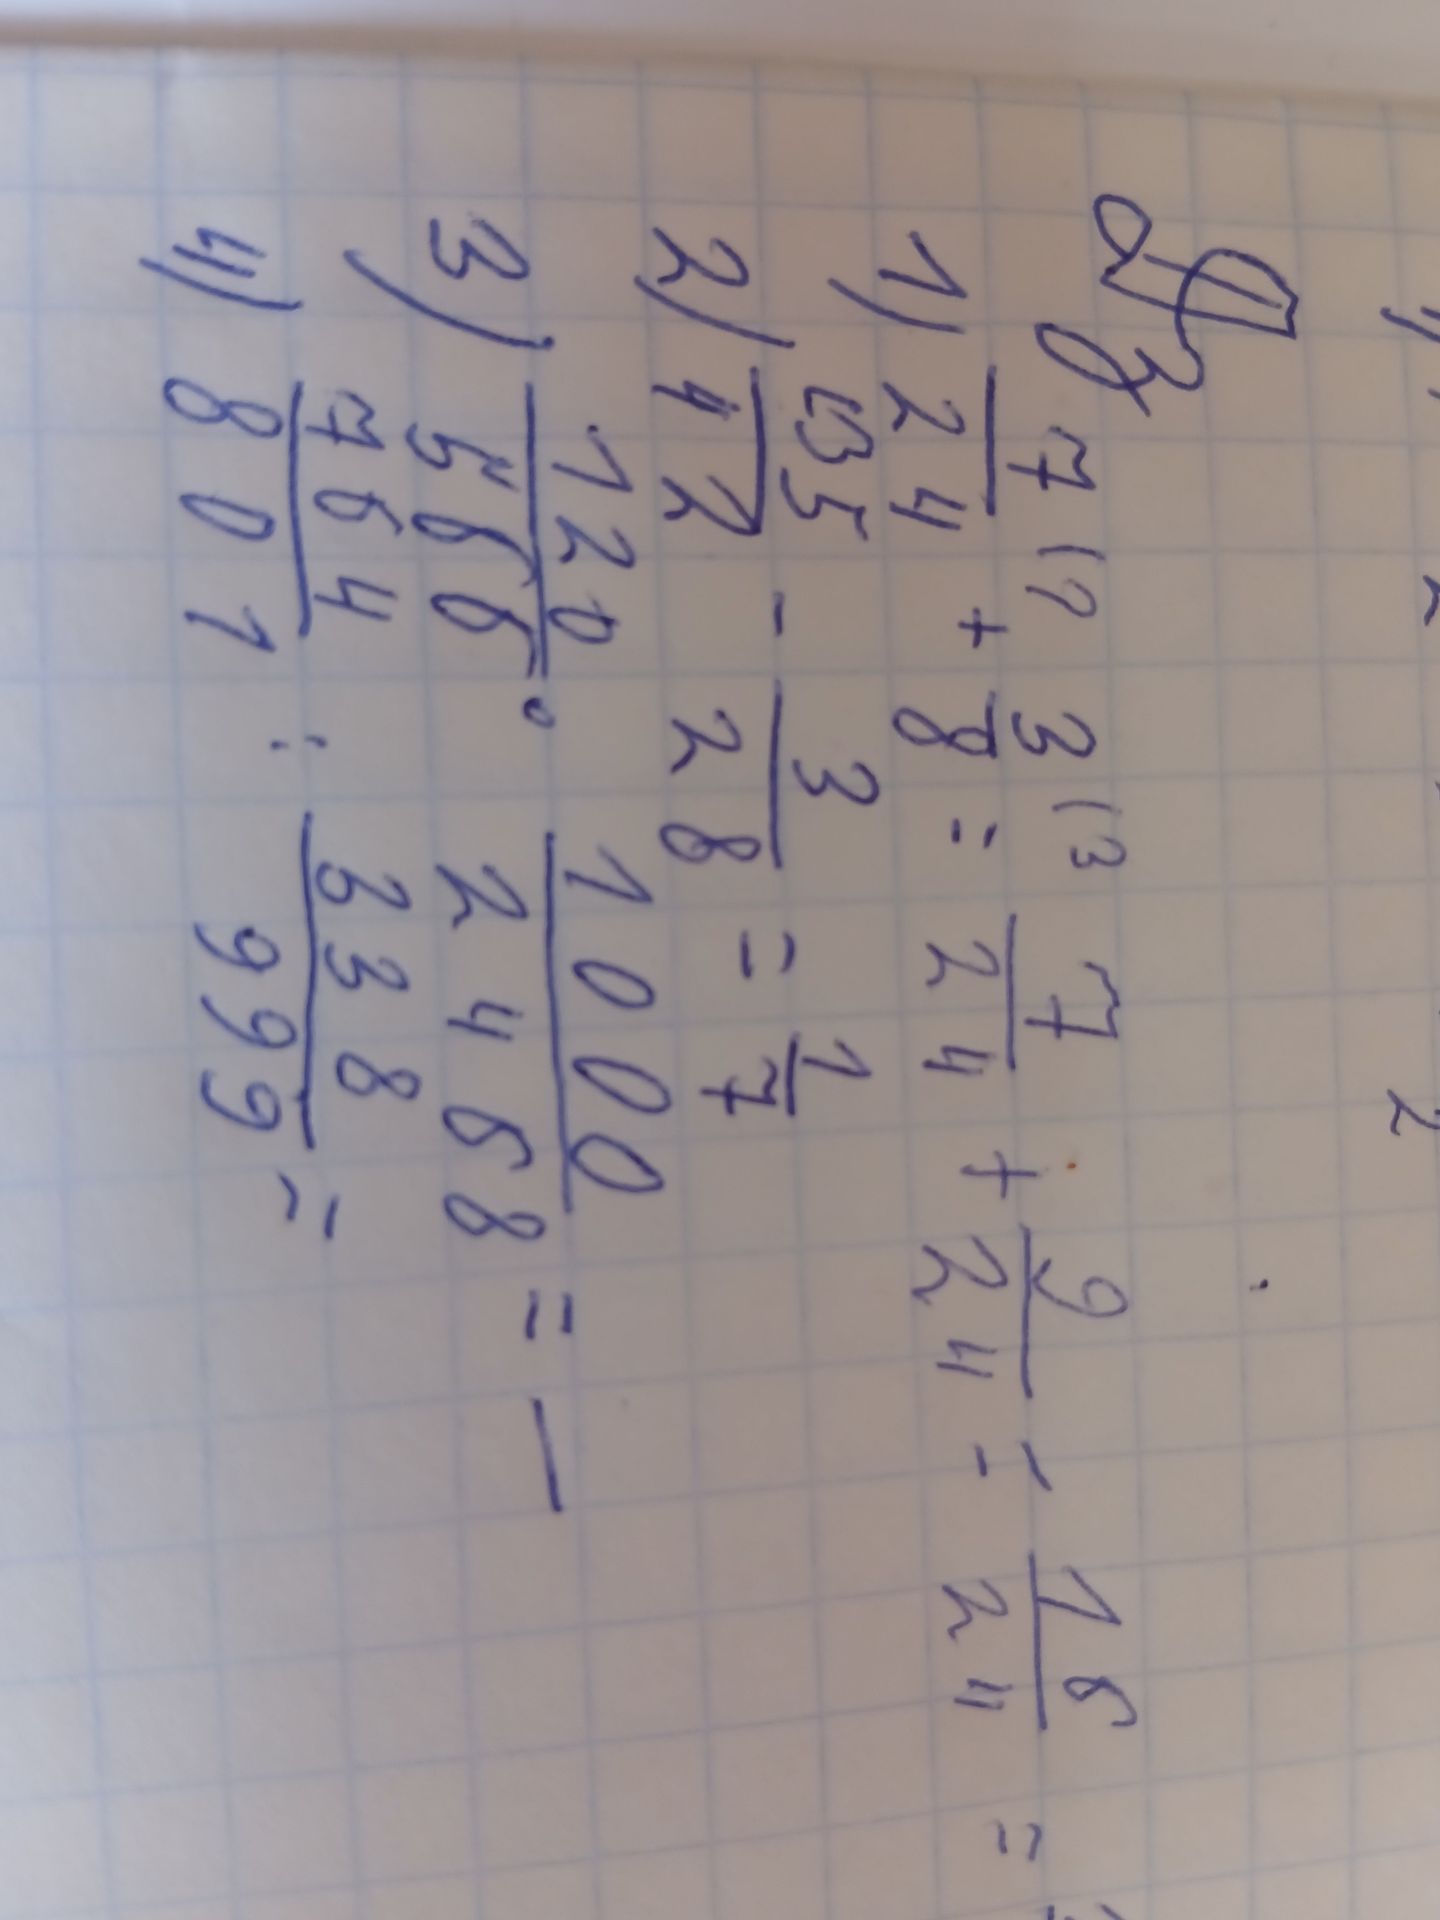 ДЗ
1) 7/24 (? + 3/8 (3 = 7/24 + 9/24 = 16/24 =
2) 5/42 - 3/28 = 1/7
3) 120/566 · 1000/2468 = —
4) 764/801 : 338/999 =